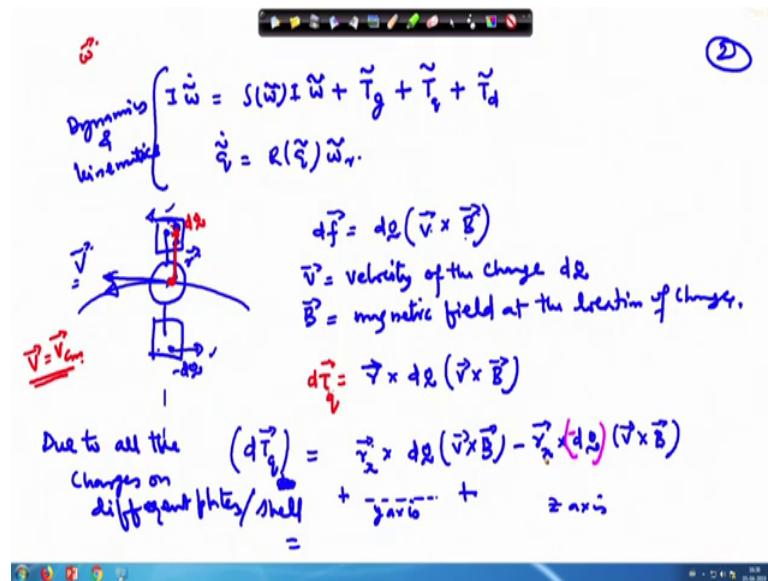 ω⃗
2
Dynamics & kinematics
I ω̃̇ = S(ω̃) I ω̃ + T̃g + T̃q + T̃d
q̃̇ = R(q̃) ω̃r.
dQ
r⃗
V⃗
-dQ
V⃗ = V⃗cm
df⃗ = dQ (v⃗ × B⃗)
v⃗ = velocity of the charge dQ
B⃗ = magnetic field at the location of charges.
dT⃗q = r⃗ × dQ (v⃗ × B⃗)
Due to all the
Charges on
different plates/shell
(dT⃗q) = r⃗x × dQ (v⃗ × B⃗) - r⃗x × (-dQ) (v⃗ × B⃗)
+ ------- y axis + z axis
=